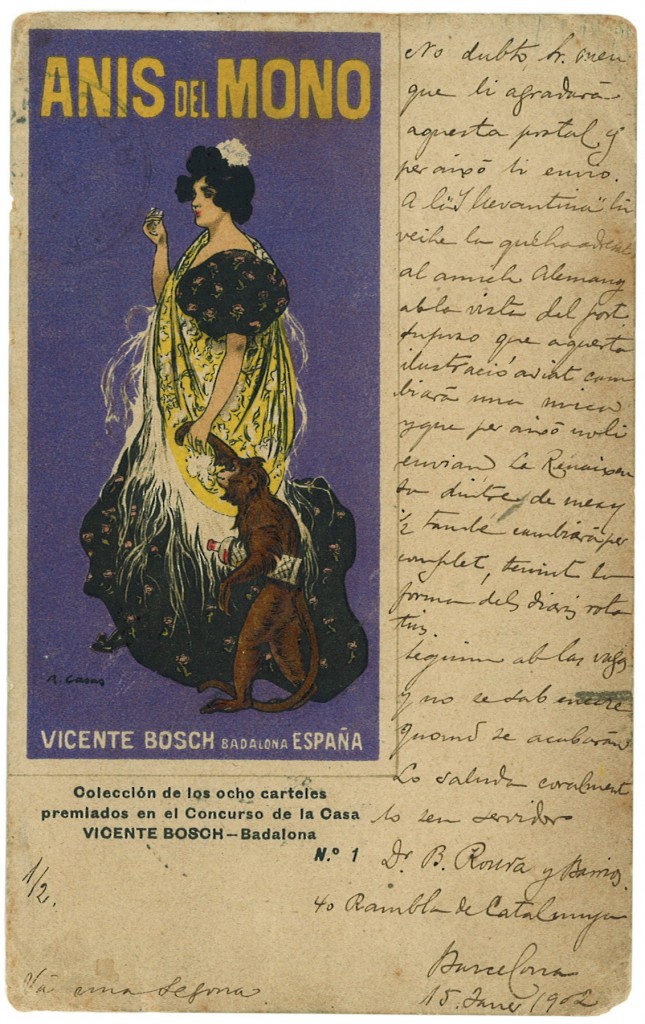 ANIS DEL MONO
R. Casas
VICENTE BOSCH BADALONA ESPAÑA
Colección de los ocho carteles
premiados en el Concurso de la Casa
VICENTE BOSCH—Badalona
N.º 1
1/2.
Vá una segona.
No dubto, Sr. meu
que li agradará
aquesta postal, y
per aixó li envio.
A la "Llevantina" hi
veihe la que ha
al amich Alemany
ab la vista del port.
Suposo que aquesta
ilustració aviat cam
biará una mica
y que per aixó no li
envian. La Renaixen
sa dintre de
1/2 també cambiará per
complet, tenint la
forma dels diaris rota
tius.
Seguim ab las vagas
y no se sab encare
quand se acabarán
Lo saluda coralment
lo seu servidor
Dr. B. Roura y Barrios.
40 Rambla de Catalunya
Barcelona
15 Janer 1902